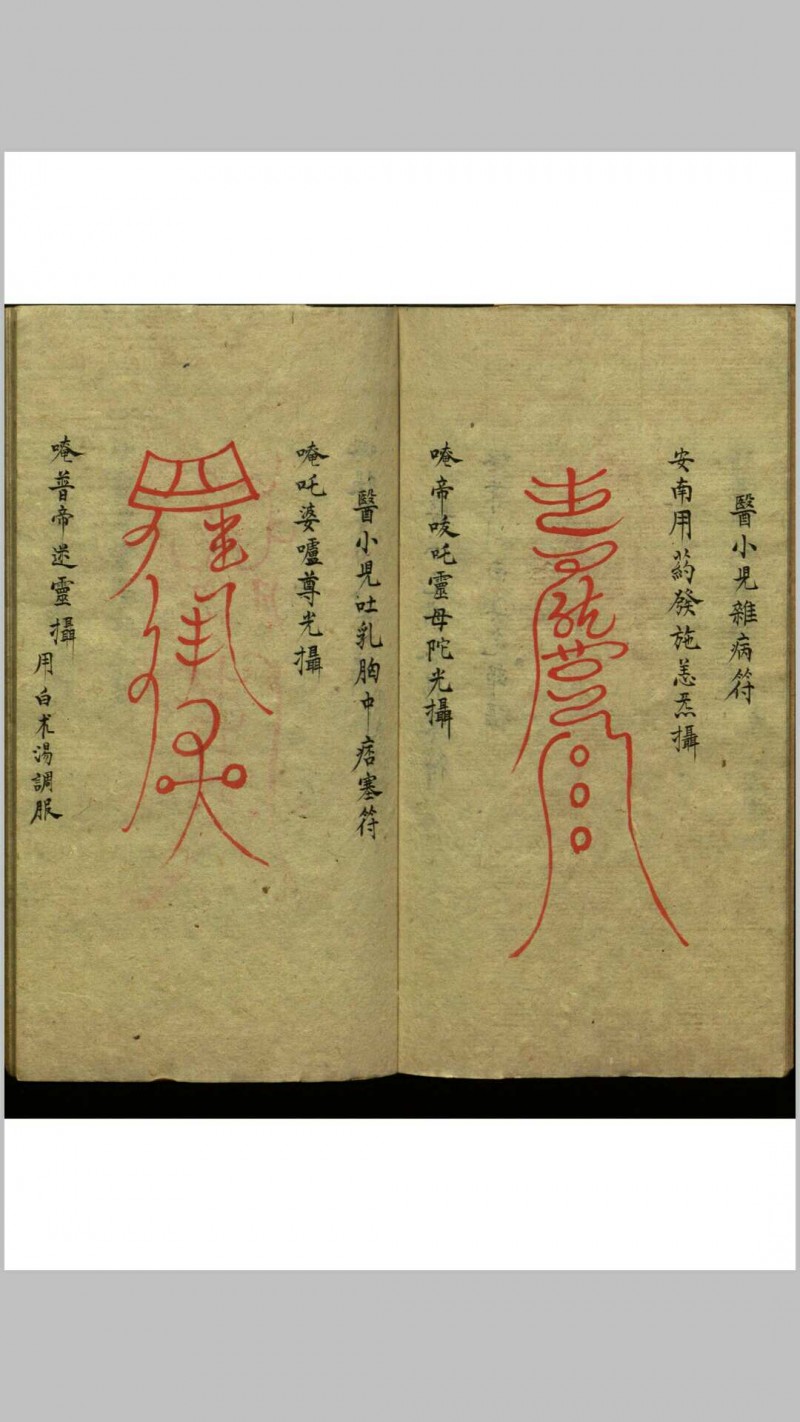 醫小兒雜病符
安南用葯發施恙炁攝
唵帝吱吒靈母陀光攝
醫小兒吐乳胸中痞塞符
唵吒婆嚧尊光攝
唵普帝迷靈攝 用白朮湯調服